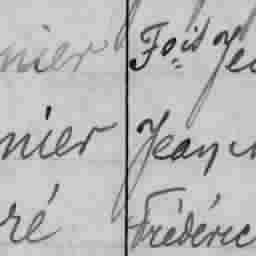 nier Fois Je
nier Jean
ré Frédéric